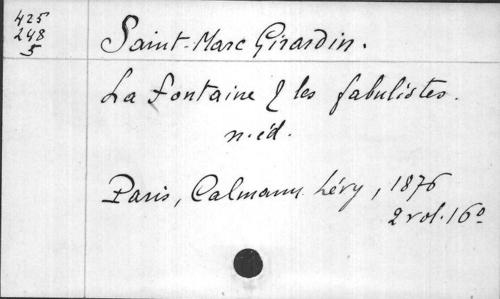 425
248
5
Saint-Marc Girardin.
La Fontaine & les fabulistes.
n. éd.
Paris, Calmann Lévy, 1876
2 vol. 16°